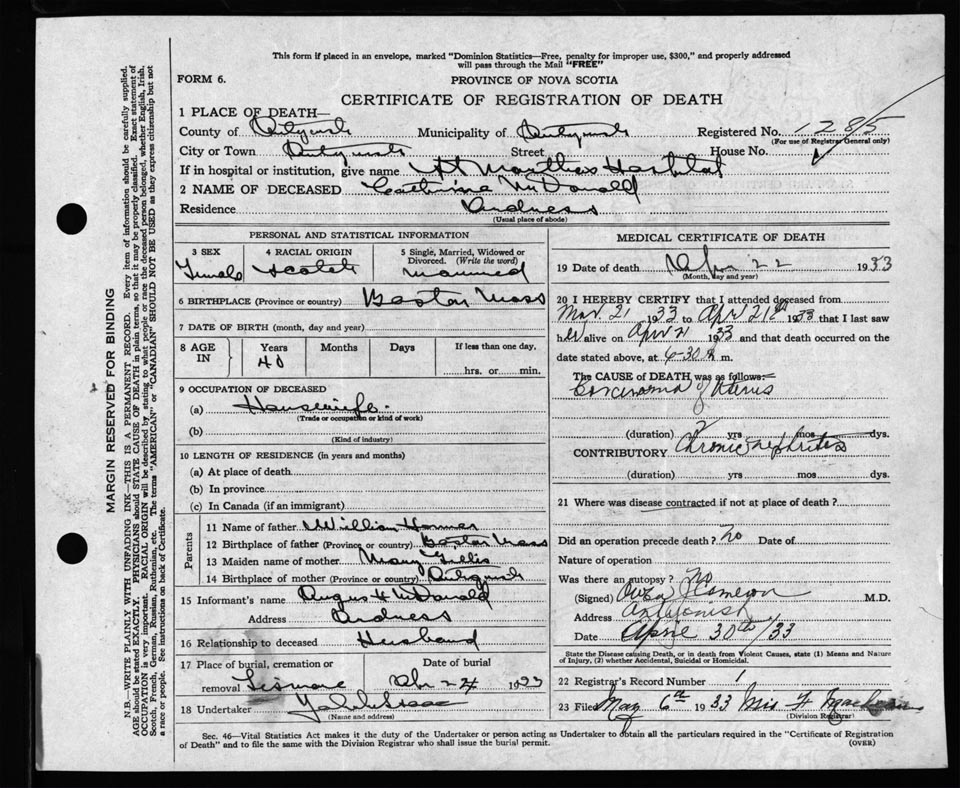 This form if placed in an envelope, marked "Dominion Statistics—Free, penalty for improper use, $300," and properly addressed
will pass through the Mail "FREE"
FORM 6.
PROVINCE OF NOVA SCOTIA
CERTIFICATE OF REGISTRATION OF DEATH
1 PLACE OF DEATH—
County of Municipality of Registered No. 1285
(For use of Registrar General only)
City or Town Street House No.
If in hospital or institution, give name St Marthas Hospital
2 NAME OF DECEASED Catherine McDonald
Residence Ardness
(Usual place of abode)
PERSONAL AND STATISTICAL INFORMATION
3 SEX Female
4 RACIAL ORIGIN Scotch
5 Single, Married, Widowed or Divorced. (Write the word) Married
6 BIRTHPLACE (Province or country) Boston Mass
7 DATE OF BIRTH (month, day and year)
8 AGE IN Years Months Days If less than one day,
40 hrs. or min.
9 OCCUPATION OF DECEASED
(a) Housewife
(Trade or occupation or kind of work)
(b)
(Kind of industry)
10 LENGTH OF RESIDENCE (in years and months)
(a) At place of death
(b) In province
(c) In Canada (if an immigrant)
Parents
11 Name of father William
12 Birthplace of father (Province or country) Boston Mass
13 Maiden name of mother Mary Gillis
14 Birthplace of mother (Province or country)
15 Informant's name Angus H McDonald
Address Ardness
16 Relationship to deceased Husband
17 Place of burial, cremation or Date of burial
removal Lismore Apr 24 1933
18 Undertaker
(Name and address)
MEDICAL CERTIFICATE OF DEATH
19 Date of death Apr 22 1933
(Month, day and year)
20 I HEREBY CERTIFY that I attended deceased from
Mar. 21 1933 to Apr 21st 1933 that I last saw
her alive on Apr 21 1933 and that death occurred on the
date stated above, at 6-30 m.
The CAUSE of DEATH was as follows:
Carcinoma of Uterus
(duration) 2 yrs mos dys.
CONTRIBUTORY Chronic nephritis
(duration) yrs mos dys.
21 Where was disease contracted if not at place of death?
Did an operation precede death? No Date of
Nature of operation
Was there an autopsy? No
(Signed) J Cameron M.D.
Address Antigonish
Date April 30th/33
State the Disease causing Death, or in death from Violent Causes, state (1) Means and Nature
of Injury, (2) whether Accidental, Suicidal or Homicidal.
22 Registrar's Record Number 1
23 Filed May 6th 1933 Miss
(Division Registrar)
Sec. 46—Vital Statistics Act makes it the duty of the Undertaker or person acting as Undertaker to obtain all the particulars required in the "Certificate of Registration
of Death" and to file the same with the Division Registrar who shall issue the burial permit.
(OVER)
MARGIN RESERVED FOR BINDING
N.B.—WRITE PLAINLY WITH UNFADING INK—THIS IS A PERMANENT RECORD. Every item of information should be carefully supplied.
AGE should be stated EXACTLY. PHYSICIANS should STATE CAUSE OF DEATH in plain terms, so that it may be properly classified. Exact statement of
OCCUPATION is very important. RACIAL ORIGIN will be described by stating to what people or race the deceased person belonged, whether English, Irish,
Scotch, French, German, Russian, Ruthenian, etc. The terms "AMERICAN" or "CANADIAN" SHOULD NOT BE USED as they express citizenship but not
a race or people. See instructions on back of Certificate.